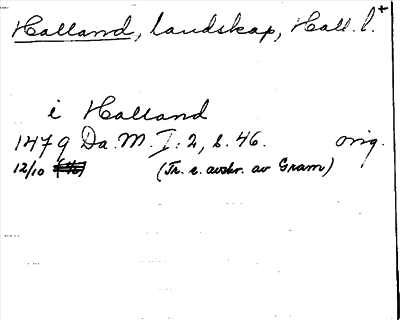 Halland, landskap, Hall. l.+
i Halland
1479 Da. M. I: 2, s. 46. orig.
12/10 (Tr. e. avskr. av Gram)